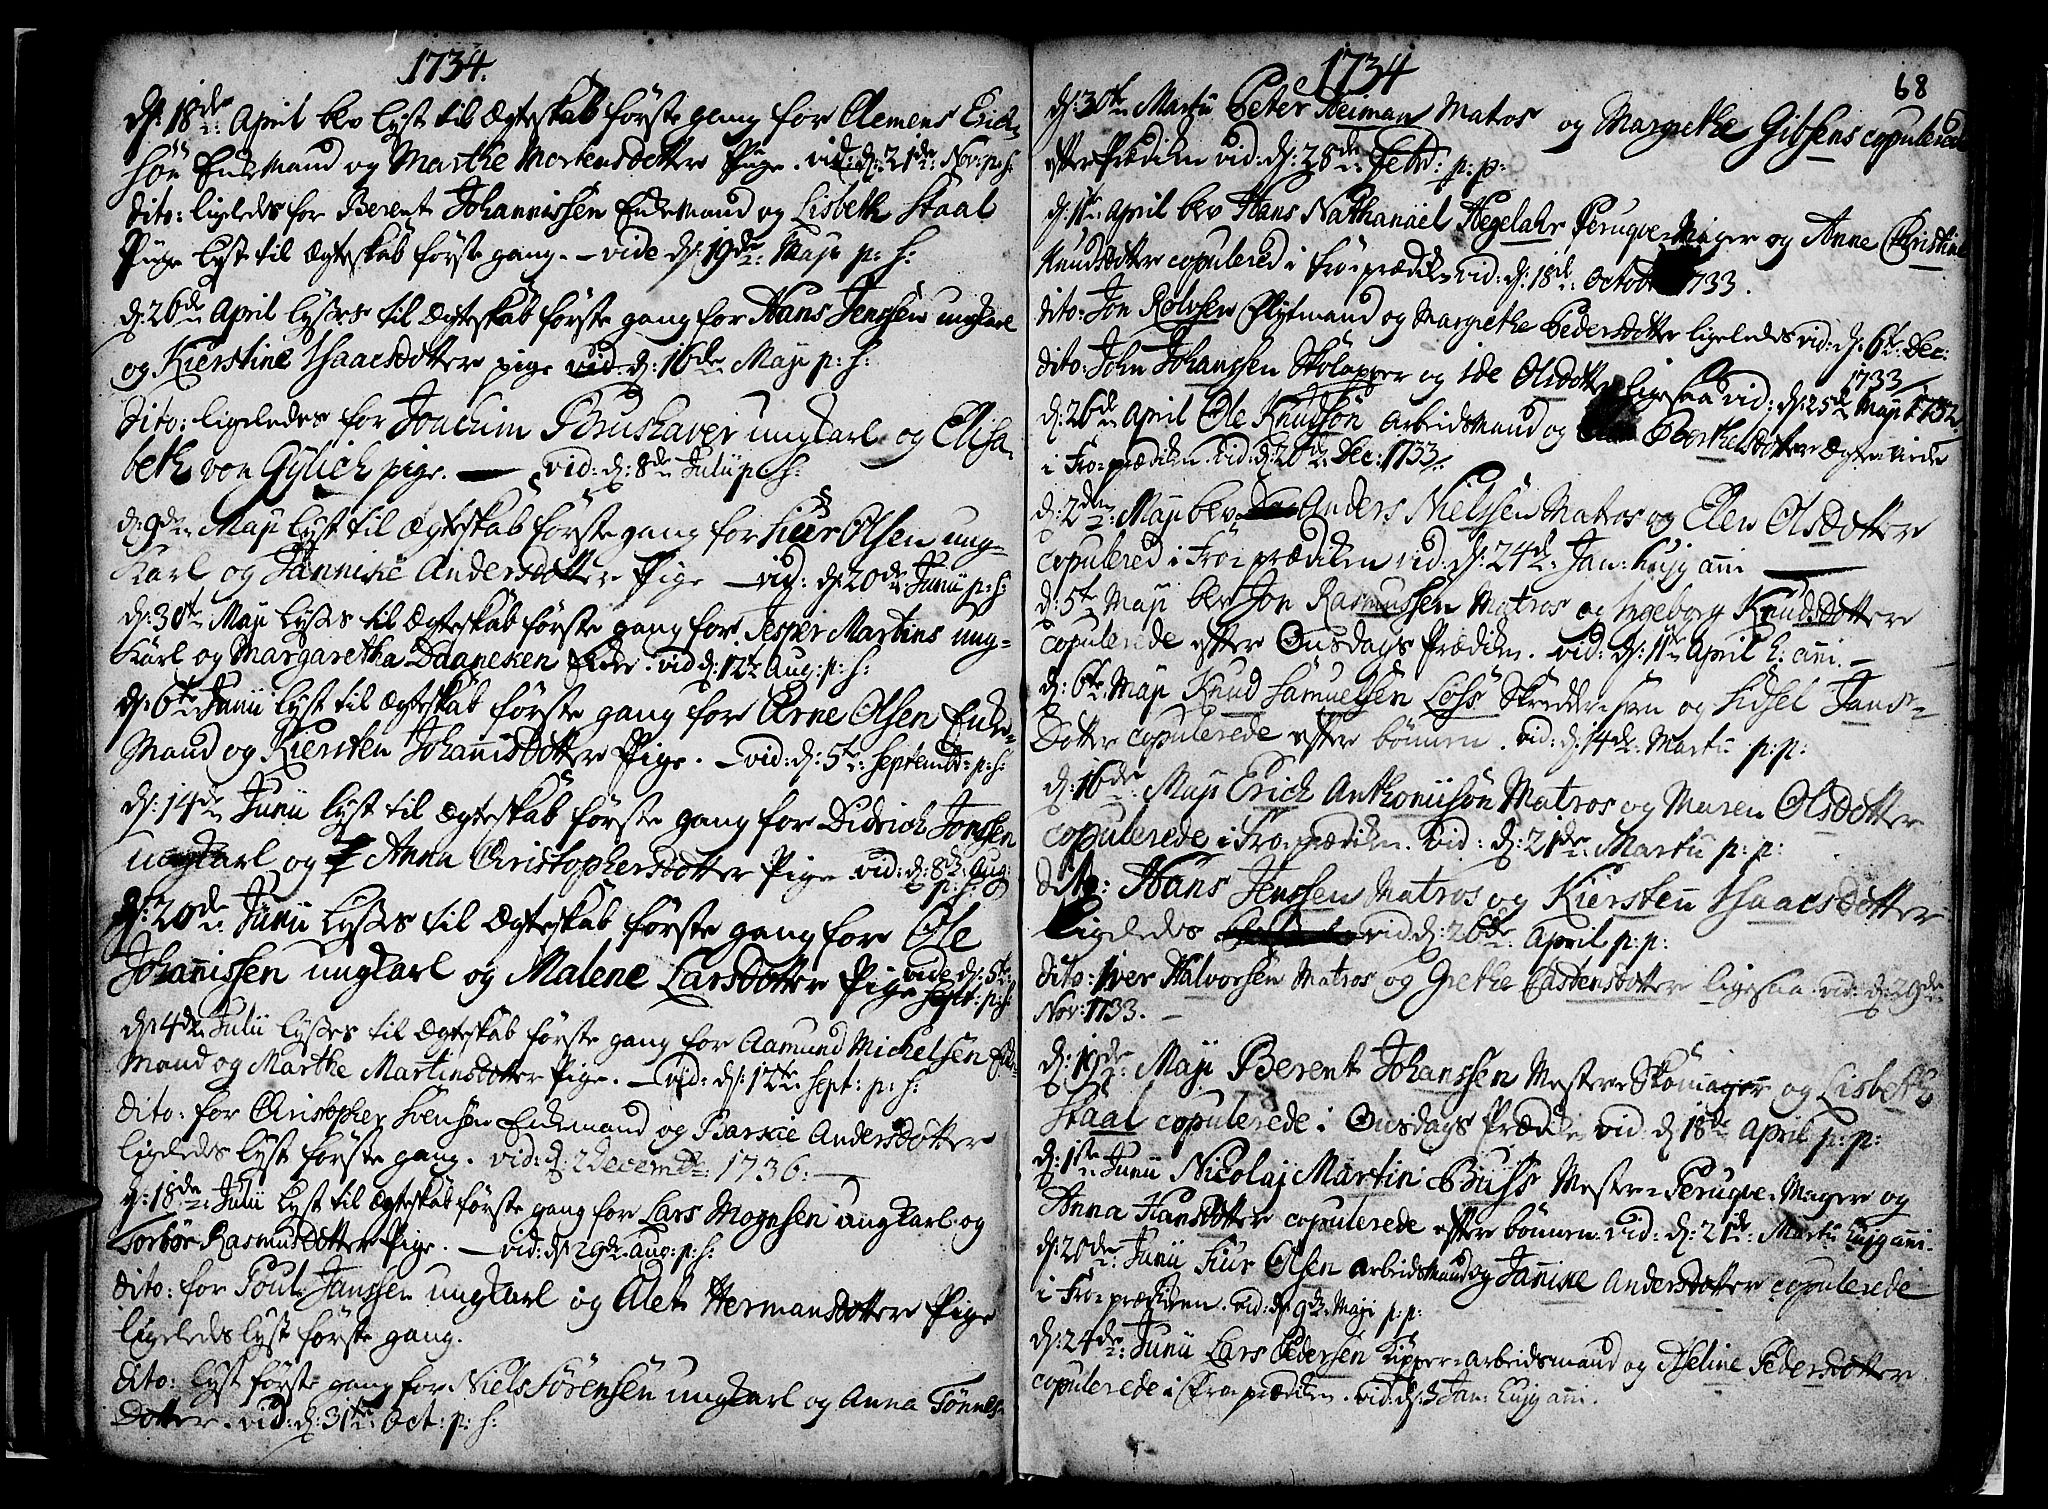 1734.
d: 18de April blv lyst til Ægteskab förste gang for Clemens Erich
Sön Enkemand og Marthe Mortensdotter Pige. vid: d: 21de Nov: p: h:
dito: ligeledes for Berent Johannissen Enkemand og Lisbeth Staal
Pige lyst til Ægteskab förste gang. - vide d: 19de Maji p: h:
d: 26de April lyses til Ægteskab förste gang for Hans Jenssen ungkarl
og Kierstine Isaacsdotter pige vid: d: 16de Maji p: h:
dito: ligeledes for Joachim Brushaver ungkarl og Elisa
beth von Gylich pige. - vid: d: 8de Julii p: h:
d: 9de Maji lyst til Ægteskab förste gang for Siur Olsen ung-
Karl og Jannike Andersdotter Pige - vid: d: 20de Junii p: h:
d: 30te Maji lyses til Ægteskab förste gang for Jesper Martins ung-
Karl og Margaretha Daaneken Enke. vid d: 12te Aug: p: h:
d: 6te Junii lyst til Ægteskab förste gang for Arne Olsen Enke-
Mand og Kiersten Johannisdotter Pige. - vid: d: 5te Septembr: p: h:
d: 14de Junii lyst til Ægteskab förste gang for Didrich Jonssen
ungkarl og Anna Christophersdotter Pige vid: d: 8de Aug:
p: h:
d: 20de Junii lyses til Ægteskab förste gang for Ole
Johannissen ungkarl og Malene Larsdotter Pige vide d: 5te
Sept: p: h:
d: 4de Julii lyses til Ægteskab förste gang for Aamund Michelsen Enke-
Mand og Marthe Martinsdotter Pige. - vid: d: 12te Sept: p: h:
dito: for Christopher Svensen Enkemand og Barskie Andersdotter
ligeledes lyst förste gang. vid: d: 2 Decembr: 1736. -
d: 18de Julii lyst til Ægteskab förste gang for Lars Mognsen ungkarl og
Torbör Rasmusdotter Pige. - vid: d: 29de Aug: p: h:
dito: for Poul Janssen ungkarl og Alet Hermansdotter Pige
ligeledes lyst förste gang.
dito: lyst förste gang for Niels Sörensen ungkarl og Anna Tönnes-
Dotter. vid: d: 31te Oct: p: h:
1734
68
d: 30te Martii Peter Neiman Matros og Margrethe Gibsens copulered
efter Prædiken vid: d: 28de Febr: p: p:
d: 11te April blv Hans Nathanäel Hegelahr Peruqve Mager og Anne Christine
Knudsdotter copulered i Froeprædik: vid: d: 18de Octob 1733.
dito: Jon Rolvsen Flytmand og Margrethe Pedersdotter ligeledes vid: d: 6te Dec:
1733
dito: John Johanssen Skolapper og Ide Olsdotter ligesaa vid: d: 25de Maji 1732
d: 26de April Ole Knudson Arbeidsmand og Borthelsdotter Ægtevied
i Froeprædiken. vid: d: 20de Dec: 1733.
d: 2den Maji blv Anders Nielssen Matros og Elen Olsdotter
copulered i Froeprædiken vid: d: 24de Jan: hujg anni -
d: 5te Maji blv Jon Rasmussen Matros og Ingeborg Knudsdotter
copulerede efter Onsdags Prædiken. vid: d: 11te April h: anni. -
d: 6te Maji Knud Samuelsen Loss Skreddersven og Sidsel Jans-
Dotter copulerede efter bönnen. vid: d: 14de Martii p: p:
d: 16de Maji Erich Anthoniisön Matros og Maren Olsdotter
copulerede i Froeprædiken. vid: d: 21de Martii p: p:
dito: Hans Jenssen Matros og Kiersten Isaacsdotter
Ligeledes vid: d: 26de April p: p:
dito: Iver Halvorsen Matros og Grethe Castensdotter ligesaa vid: d: 29de
Nov: 1733. -
d: 19de Maji Berent Johanssen Mester Skomager og Lisbeth
Staal copulerede i Onsdags Prædik: vid d: 18de April p: p:
d: 1ste Junii Nicolaj Martini Buss Mester Peruqve Mager og
Anna Hansdotter copulerede efter bönnen. vid: d: 21de Martii hujg anni.
d: 20de Junii Siur Olsen Arbeidsmand og Jannike Andersdotter copulerede
i Froeprædiken. vid: d: 9de Maji p: p:
d: 24de Junii Lars Pedersen Kipper-Arbeidsmand og Aseline Pedersdotter
copulerede i Froeprædiken. vid: d: 3 Jan: hujg anni.